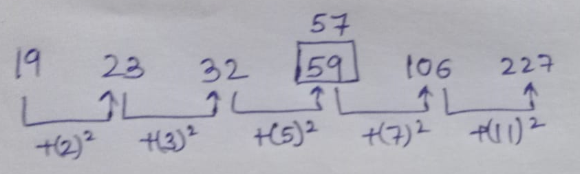 57
19 23 32 59 106 227
+(2)² +(3)² +(5)² +(7)² +(11)²